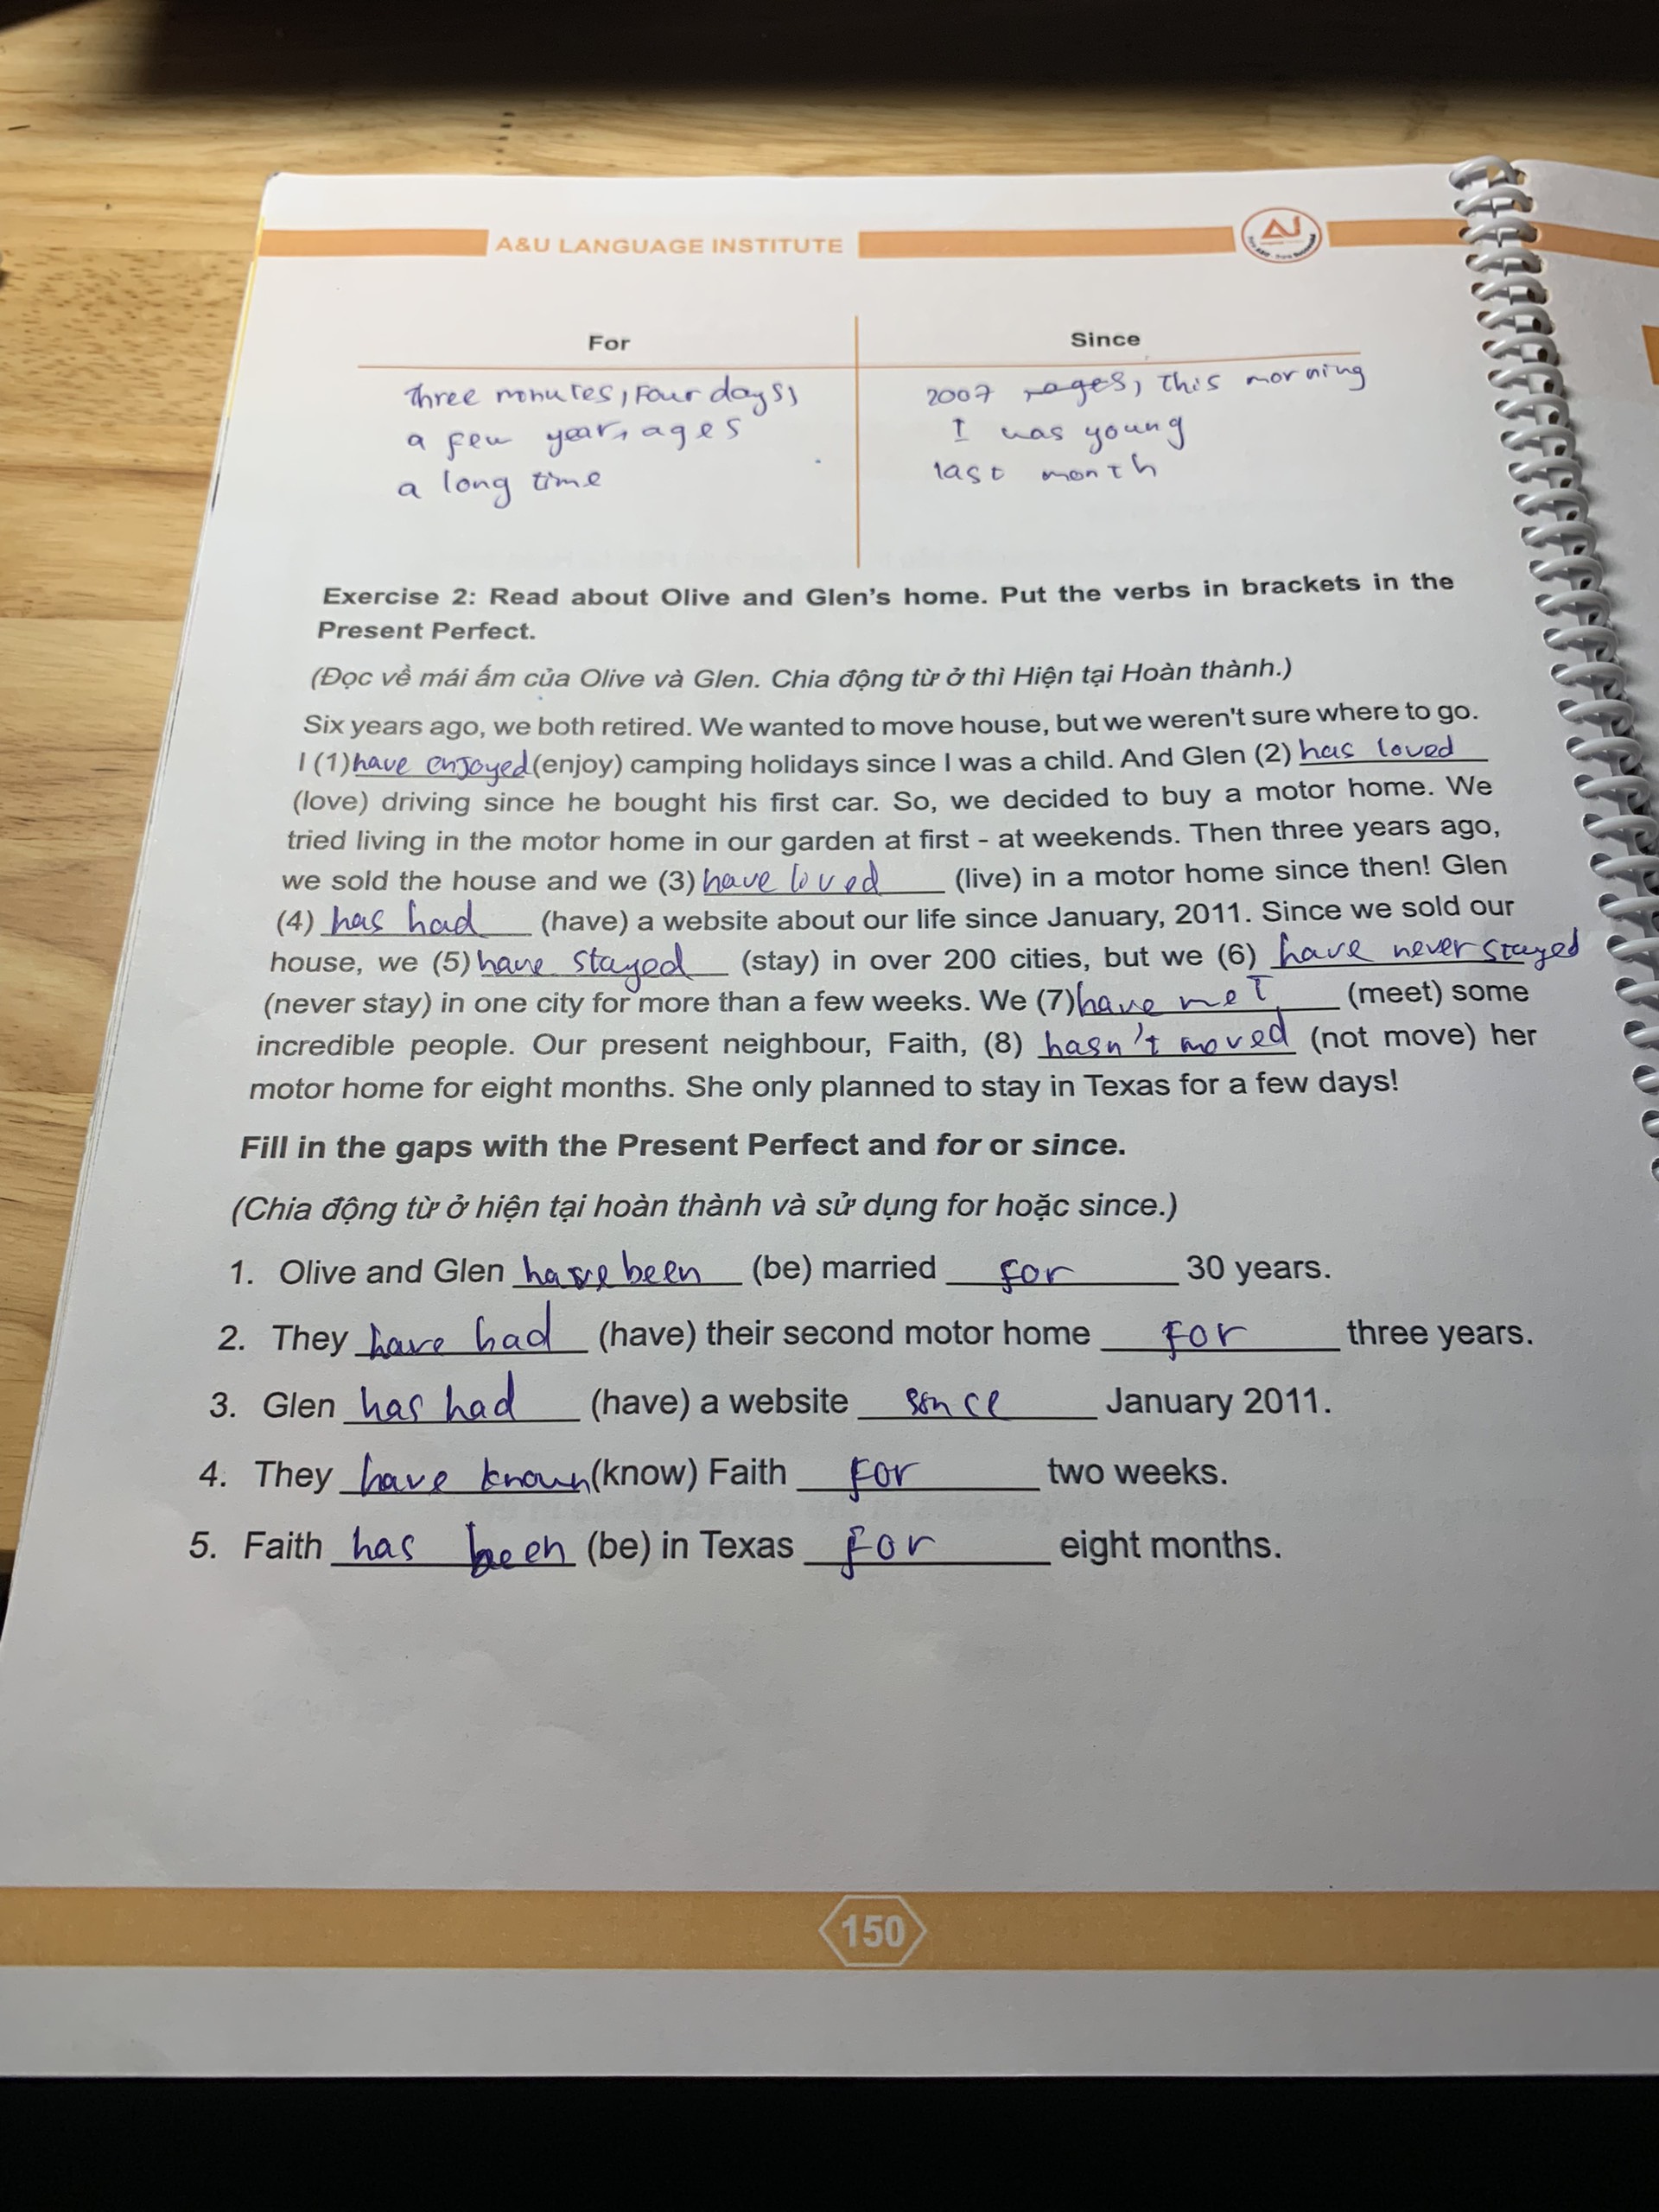 A&U LANGUAGE INSTITUTE
For
Since
three minutes, Four days,
a few year, ages
a long time
2007 ages, this morning
I was young
last month
Exercise 2: Read about Olive and Glen's home. Put the verbs in brackets in the
Present Perfect.
(Đọc về mái ấm của Olive và Glen. Chia động từ ở thì Hiện tại Hoàn thành.)
Six years ago, we both retired. We wanted to move house, but we weren't sure where to go.
I (1) have enjoyed (enjoy) camping holidays since I was a child. And Glen (2) has loved
(love) driving since he bought his first car. So, we decided to buy a motor home. We
tried living in the motor home in our garden at first - at weekends. Then three years ago,
we sold the house and we (3) have loved (live) in a motor home since then! Glen
(4) has had (have) a website about our life since January, 2011. Since we sold our
house, we (5) have stayed (stay) in over 200 cities, but we (6) have never stayed
(never stay) in one city for more than a few weeks. We (7) have met (meet) some
incredible people. Our present neighbour, Faith, (8) hasn't moved (not move) her
motor home for eight months. She only planned to stay in Texas for a few days!
Fill in the gaps with the Present Perfect and for or since.
(Chia động từ ở hiện tại hoàn thành và sử dụng for hoặc since.)
1. Olive and Glen have been (be) married for 30 years.
2. They have had (have) their second motor home for three years.
3. Glen has had (have) a website since January 2011.
4. They have known (know) Faith for two weeks.
5. Faith has been (be) in Texas for eight months.
150